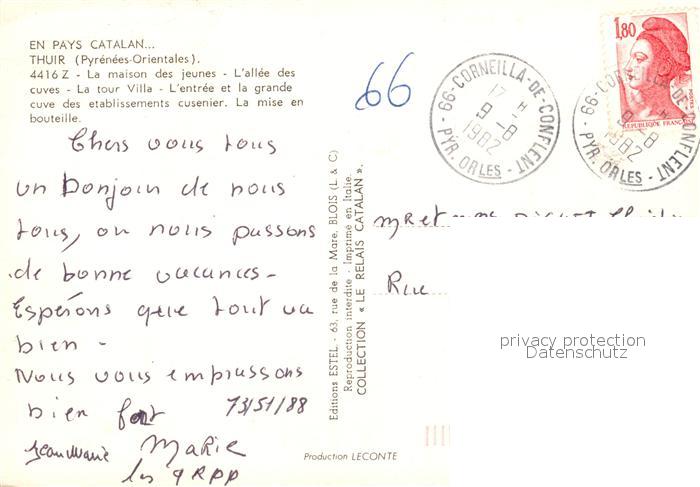 EN PAYS CATALAN...
THUIR (Pyrénées-Orientales).
4416 Z - La maison des jeunes - L'allée des
cuves - La tour Villa - L'entrée et la grande
cuve des etablissements cusenier. La mise en
bouteille.
Chers vous tous
un Bonjour de nous
tous, ou nous passons
de bonne vacances -
Espérons que tout va
bien -
Nous vous embrassons
bien fort
73/51/88
Jean Marie
Marie
les
Editions ESTEL - 63, rue de la Mare, BLOIS (L. & C)
Reproduction interdite - Imprimé en Italie.
COLLECTION « LE RELAIS CATALAN ».
Production LECONTE
66
66-CORNEILLA-DE-CONFLENT
17 H
9-8
1982
PYR. ORLES
66-CORNEILLA-DE-CONFLENT
9-8
1982
PYR. ORLES
1,80
REPUBLIQUE FRANÇAISE
MR et
Rue
privacy protection
Datenschutz